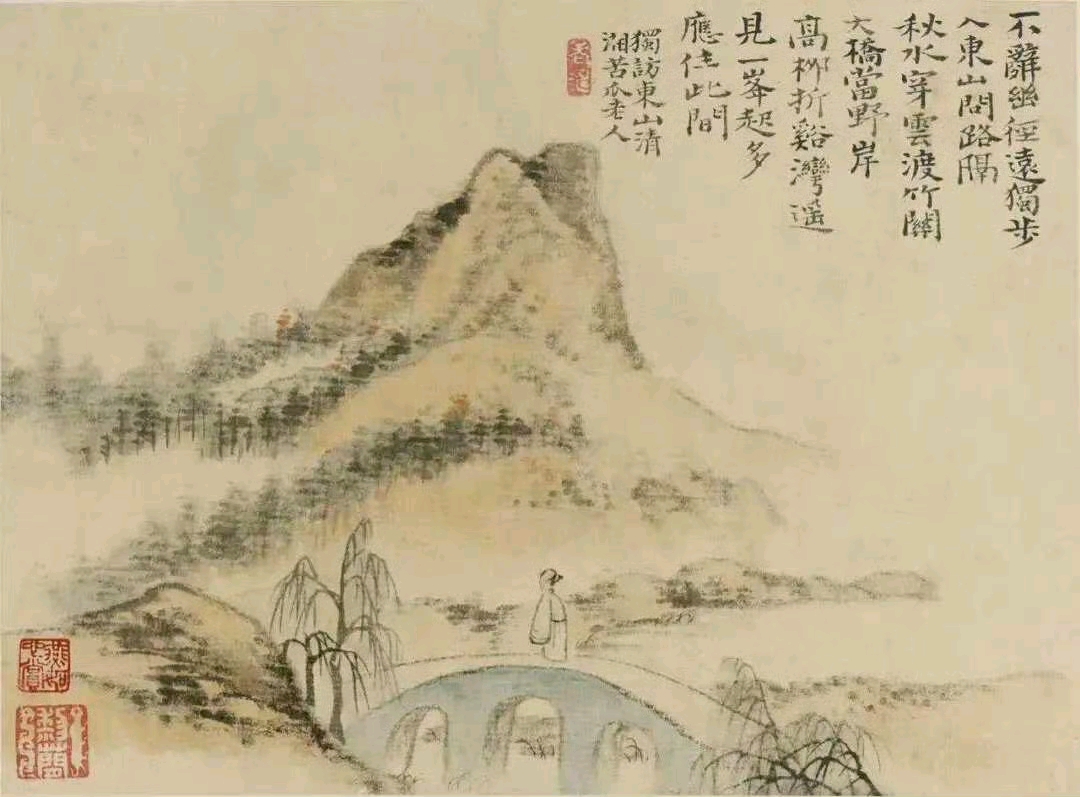 不辭幽徑遠獨步
入東山問路隔
秋水穿雲渡竹關
大橋當野岸
高柳折谿灣遥
見一峯起多
應住此間
獨訪東山清
湘苦瓜老人